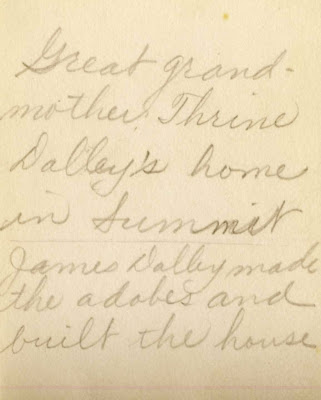 Great grand-
mother Thrine
Dalley's home
in Summit
James Dalley made
the adobes and
built the house